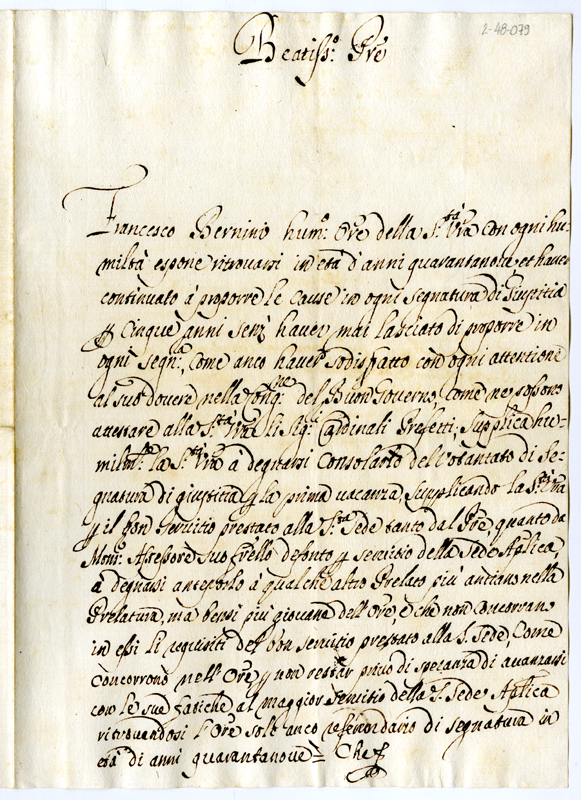 2-48-079
Beatiss.º Pre
Francesco Bernino hum.º Ore della S.tà Vra con ogni hu-
miltà espone ritrouarsi in età d'anni quarantanoue, et hauer
continuato à proporre le Cause in ogni Segnatura di Giustitia
p Cinque anni senz' hauer mai lasciato di proporre in
ogni Segn.ra, Come anco hauer sodisfatto con ogni attentione
al suo douere nella Cong.ne del Buon Gouerno, come ne possono
attestare alla S.tà Vra li Sig.ri Cardinali Prefetti; Supplica hu-
milm.te la S.tà Vra à degnarsi Consolarlo dell'Votantato di Se-
gnatura di giustitia p la prima uacanza, Supplicando la S.tà Vra
p il bon Seruitio prestato alla S.ta Sede tanto dal Pre, quanto da
Mons.r Assessore suo frello defonto p seruitio della Sede Aplica,
à degnarsi anteporlo à qualche altro Prelato più antiano nella
Prelatura, ma bensi più giouane dell'Ore, e che non concorrano
in essi li requisiti del bon seruitio prestato alla S. Sede, Come
concorrono nell'Ore p non restar priuo di speranza di auanzarsi
con le sue fatiche al maggior Seruitio della S. Sede Aplica
ritrouandosi l'Ore solo anco referendario di segnatura in
età di anni quarantanoue = Che